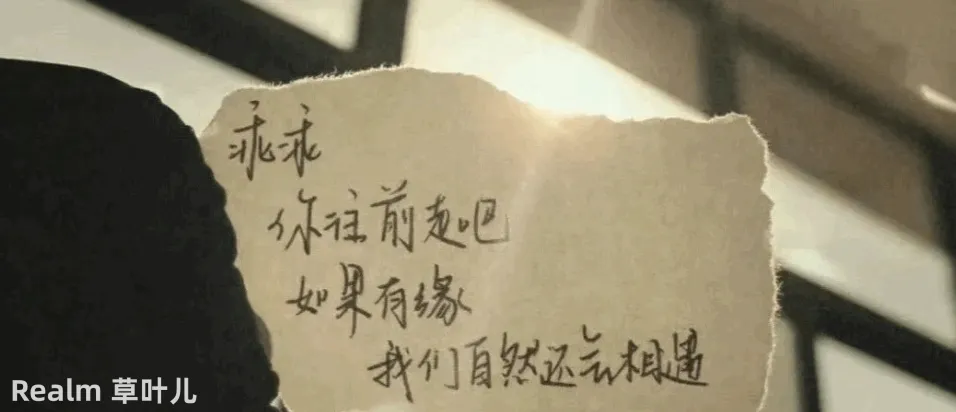 乖乖
你往前走吧
如果有缘
我们自然还会相遇
Realm 草叶儿